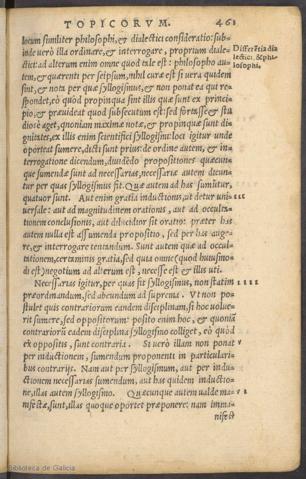 TOPICORVM. 461
locum similiter philosophi, & dialectici consideratio: sub-
inde verò illa ordinare, & interrogare, proprium diale-
ctici: ad alterum enim omne quod tale est: philosopho au-
tem, & quærenti per seipsum, nihil curæ est si vera quidem
sint, & nota per quæ syllogismus, & non ponat ea qui re-
spondet, eò quòd propinqua sint illis quæ sunt ex princi-
pio, & præuideat quod subsecutum est: sed fortasse & stu
diose aget, quoniam maximè nota, & propinquæ sunt di-
gnitates, ex illis enim scientifici syllogismi: loci igitur unde
oporteat sumere, dicti sunt prius: de ordine autem, & in-
terrogatione dicendum, diuidēdo propositiones quæcun-
que sumendæ sunt ad necessarias, necessariæ autem dicun-
tur per quas syllogismus fit. Quæ autem ad has sumūtur,
quatuor sunt. Aut enim gratia inductionis, ut detur uni-
uersale: aut ad magnitudinem orationis, aut ad occulta-
tionem conclusionis, aut ut
oratio: præter has
autem nulla est assumenda propositio, sed per has auge-
re, & interrogare tentandum. Sunt autem quæ ad occul-
tationem, certaminis gratia, sed quia omne (quod huiusmo-
di est) negotium ad alterum est, necesse est & illis uti.
Necessarias igitur, per quas fit syllogismus, non statim
præordinandum, sed abeundum ad suprema. Vt non pos
tulet quis contrariorum eandem disciplinam, si hoc uolue-
rit sumere, sed oppositorum: posito enim hoc, & quoniā
contrariorū eadem disciplina syllogismo colliget, eò quòd
ex oppositis, sunt contraria. Si uerò illam non ponat
per inductionem, sumendum proponenti in particulari-
bus contrarijs. Nam aut per syllogismum, aut per indu-
ctionem necessarias sumendum, aut has quidem inductio-
ne, illas autem syllogismo. Quæcunque autem ualde ma-
nifestæ, sunt, illas quoque oportet præponere: nam immi-
nifest
Differētia dia
lectici, & phi-
losophi.
Biblioteca de Galicia